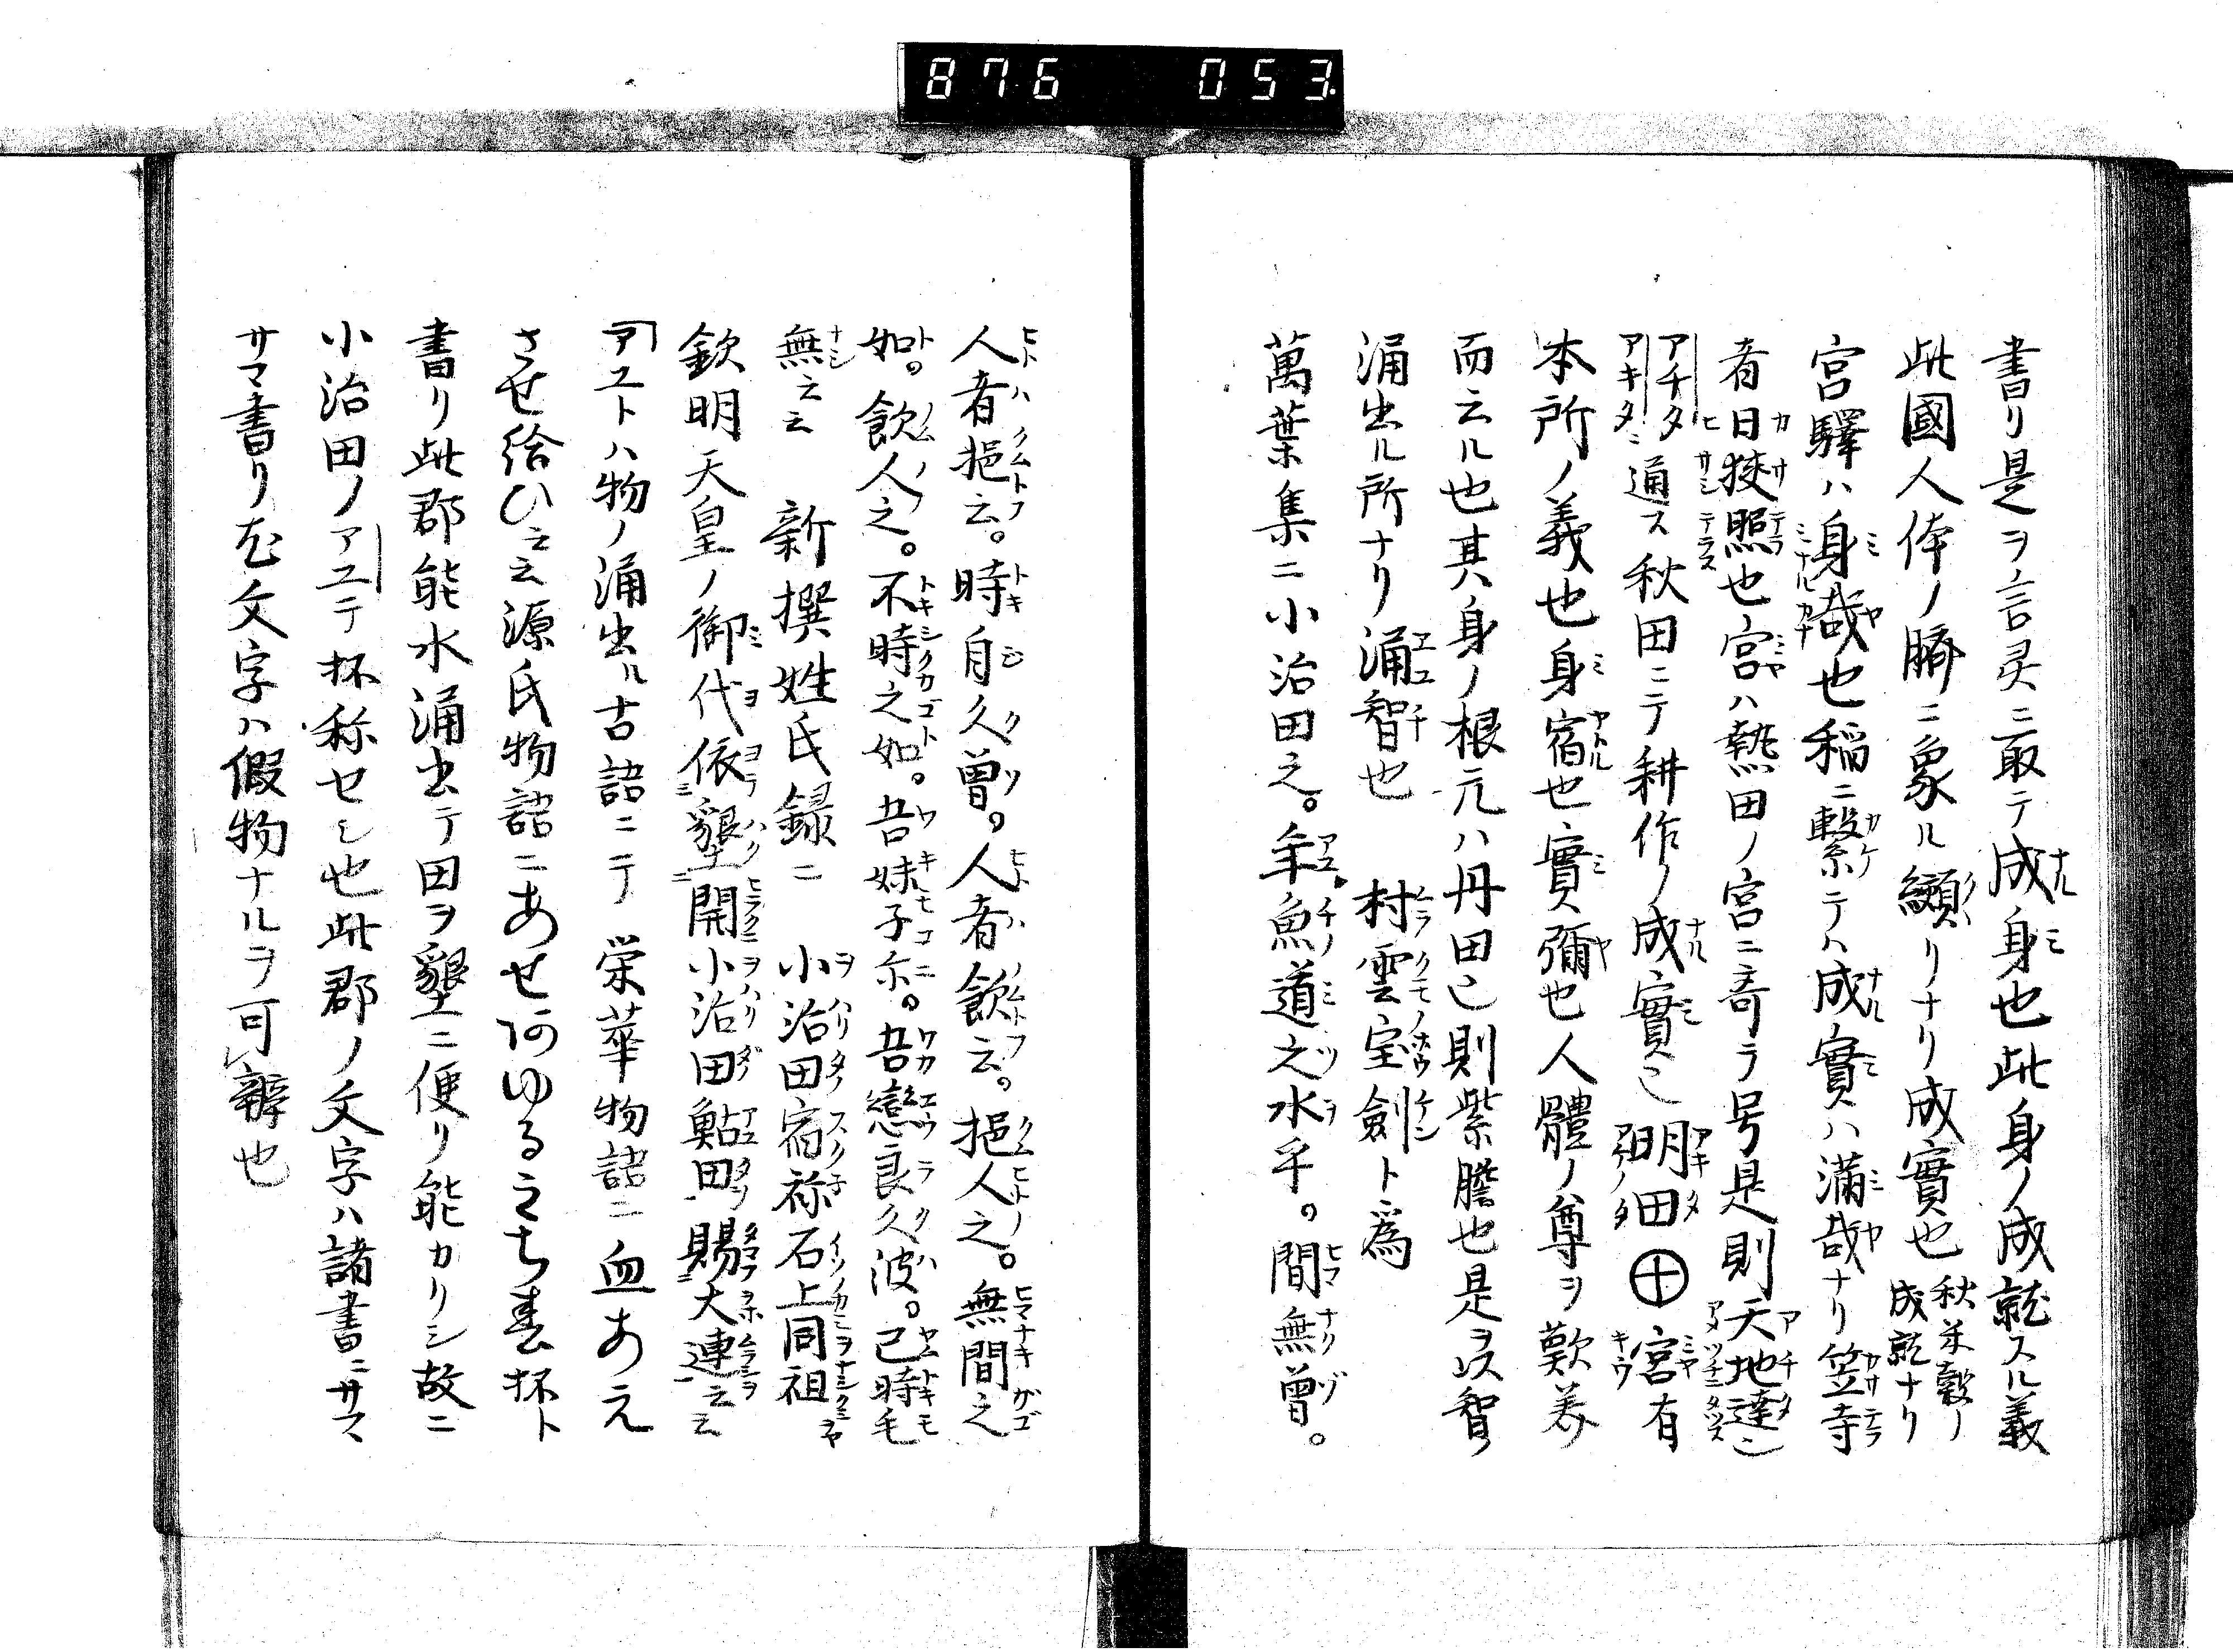 876 053.
書リ是ヲ言灵ニ取テ成身也此身ノ成就スル義
此國人体ノ臍ニ象ル纐リナリ成實也 秋米穀ノ成就ナリ
宮驛ハ身哉也稲ニ繋テハ成實ハ滿哉ナリ笠寺
者日狹照也宮ハ熱田ノ宮ニ寄ラ号是則天地達
アチタ
アキタニ通ス秋田ニテ耕作ノ成實 明田⊕宮有
本所ノ義也身宿也實彌也人體ノ尊ヲ歎美
而云ル也其身ノ根元ハ丹田 則紫膽也是ヲ以智
涌出ル所ナリ涌智也 村雲宝劍ト為
萬葉集ニ小治田之。年魚道之水乎。間無曽。
人者挹云。時自久曽。人者飲云。挹人之。無間之
如。飲人之。不時之如。吾妹子尓。吾戀良久波。已時毛
無云云 新撰姓氏録ニ 小治田宿祢石上同祖
欽明天皇ノ御代依墾開小治田鮎田賜大連云云
アユトハ物ノ涌出ル古語ニテ 栄華物語ニ血あえ
させ給ひ云云源氏物語ニあせ阿ゆる
書リ此郡能水涌出テ田ヲ墾ニ便リ能カリシ故ニ
小治田ノアユテ抔称セシ也此郡ノ文字ハ諸書ニサマ
サマ書リ 文字ハ假物ナルヲ可辨也